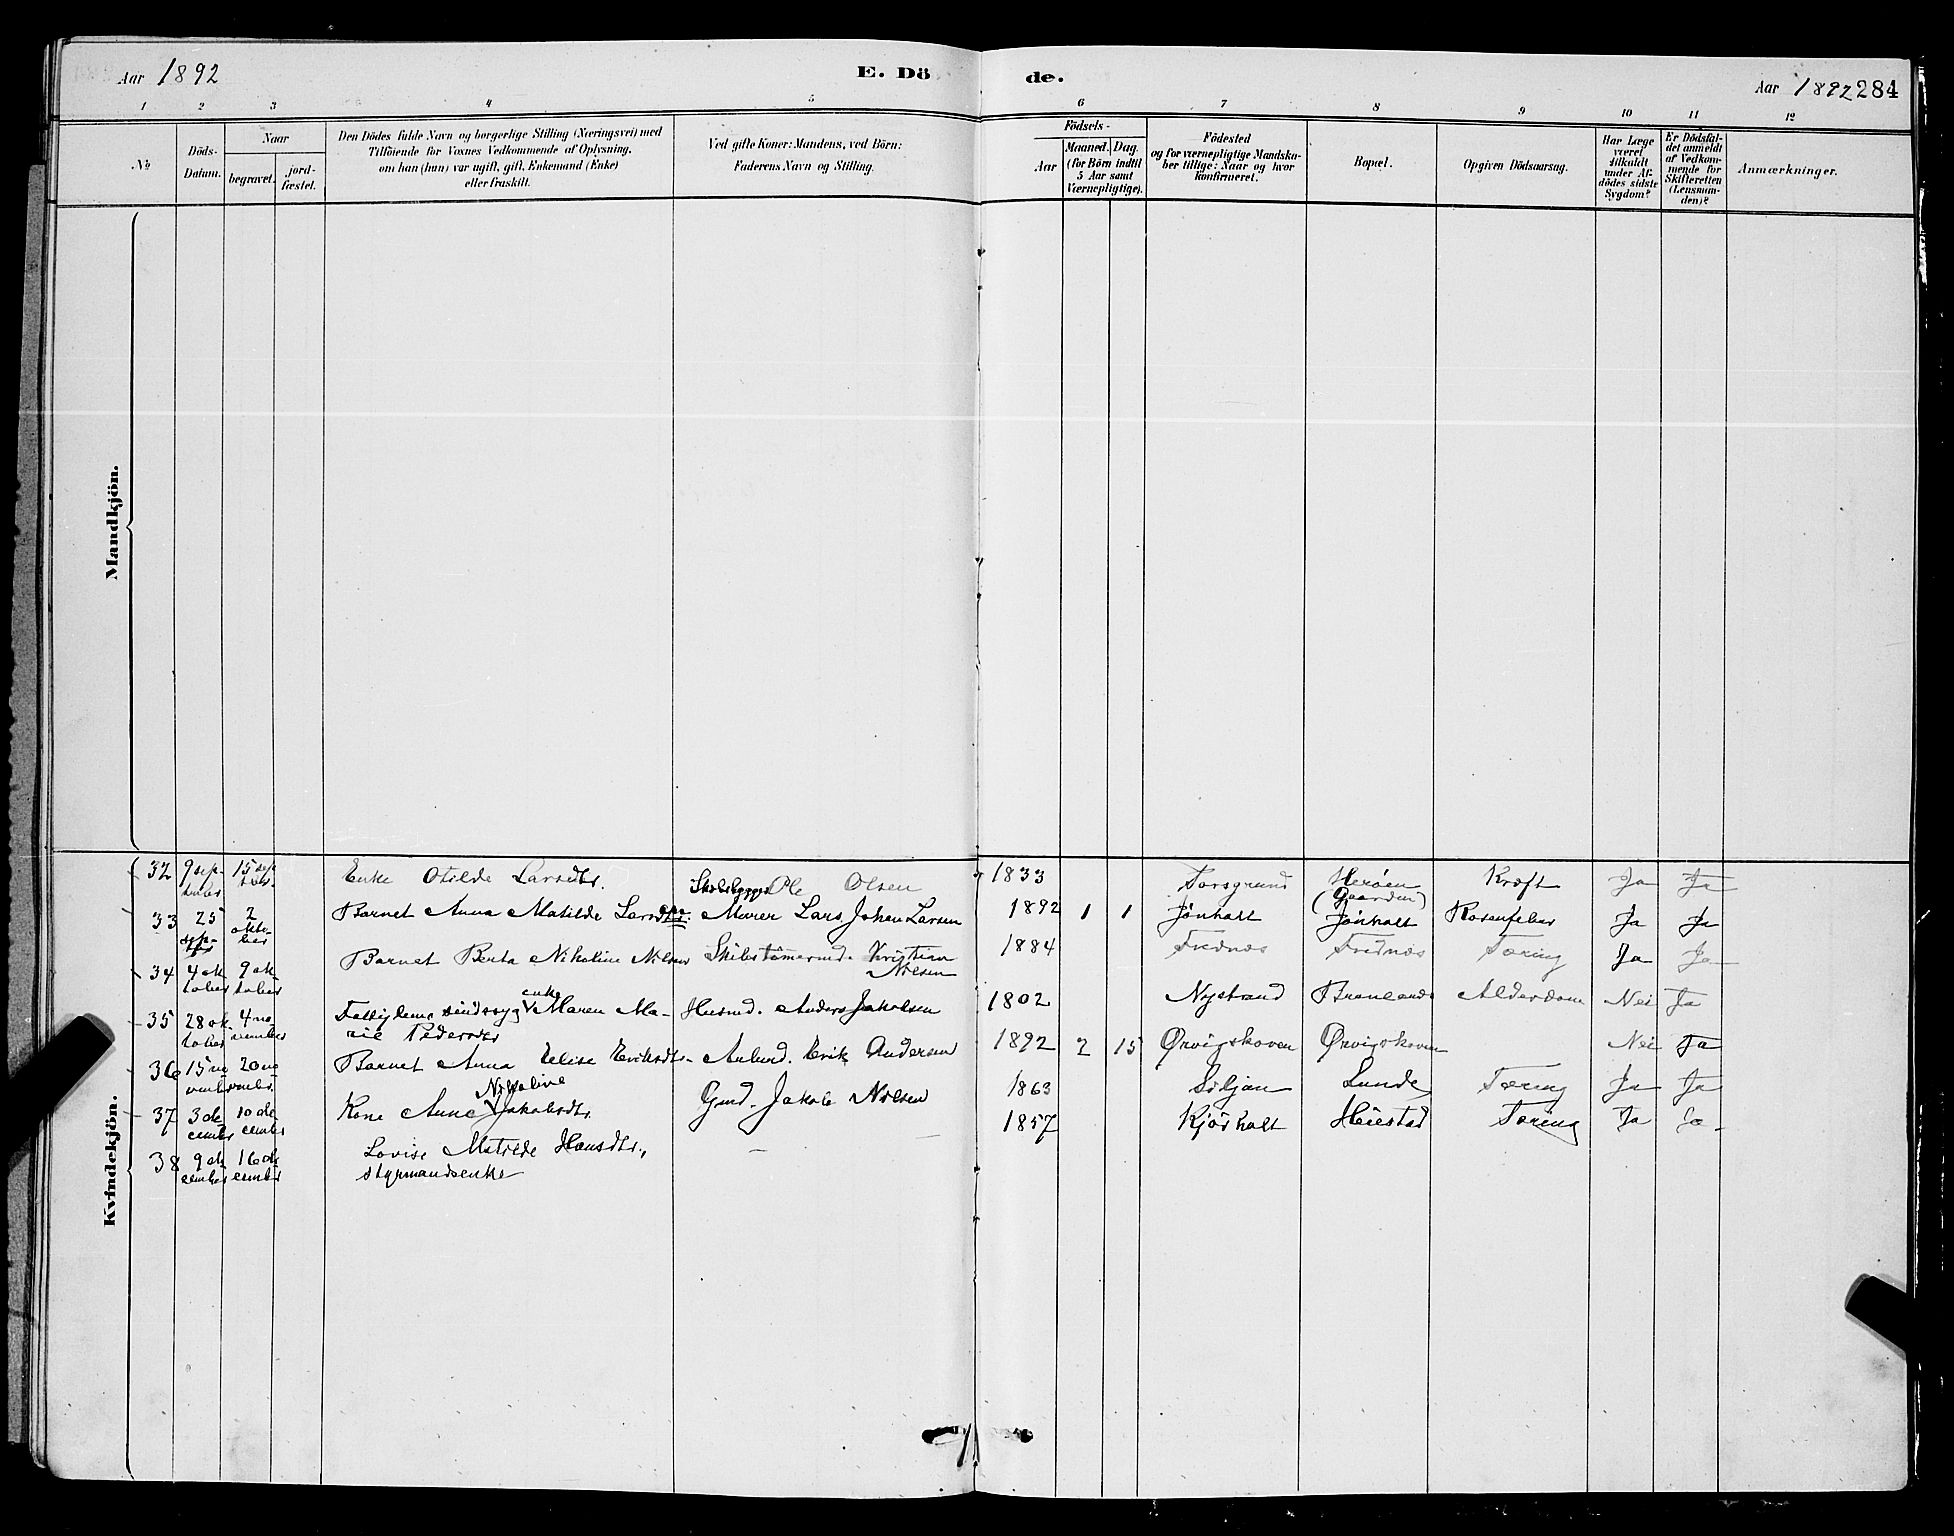 Aar 1892
E. Döde.
Aar 1892 284
1 2 3 4 5 6 7 8 9 10 11 12
No
Döds-Datum.
Naar
begravet.
jord-fæstet.
Den Dödes fulde Navn og borgerlige Stilling (Næringsvei) med
Tilföiende for Voxnes Vedkommende af Oplysning,
om han (hun) var ugift, gift, Enkemand (Enke)
eller fraskilt.
Ved gifte Koner: Mandens, ved Börn:
Faderens Navn og Stilling.
Födsels-
Aar
Maaned. Dag.
(for Börn indtil
5 Aar samt
Værnepligtige).
Födested
og for værnepligtige Mandska-
ber tillige: Naar og hvor
konfirmeret.
Bopæl.
Opgiven Dödsaarsag.
Har Læge
været
tilkaldt
under Af-
dödes sidste
Sygdom?
Er Dödsfal-
det anmeldt
af Vedkom-
mende for
Skifteretten
(Lensman-
den)?
Anmærkninger.
Mandkjön.
Kvindekjön.
32 9 september 15 sep Enke Otilde Larsdtr. Ole Olsen 1833 Porsgrund Herøen (Gaarden) Kræft Ja Ja
33 25 sep- 2 oktober Barnet Anna Matilde Larsdtr. Murer Lars Johan Larsen 1892 1 1 Jønholt Jønholt Rosenfeber Ja Ja
34 4 oktober 9 oktober Barnet Berta Nikoline Nilsen Skibstømermd. Kristian Nilsen 1884 Frednæs Frednæs Tæring Ja Ja
35 28 oktober 4 november Fattiglem, sindssyg enke Maren Ma-
rie Pedersdtr Husmd. Anders Jakobsen 1802 Nystrand Alderdom Nei Ja
36 15 november 20 november Barnet Anna Elise Eriksdtr. Arbmd. Erik Andersen 1892 2 15 Ørvigskoven Ørvigskoven Nei Ja
37 3 december 10 december Kone Anne Nikoline Jakobsdtr. Gmd. Jakob Nilsen 1863 Siljan Lunde Tæring Ja Ja
38 9 december 16 december Lovise Matilde Hansdtr., — 1857 Kjørholt Heistad Tæring Ja Ja
styrmandsenke